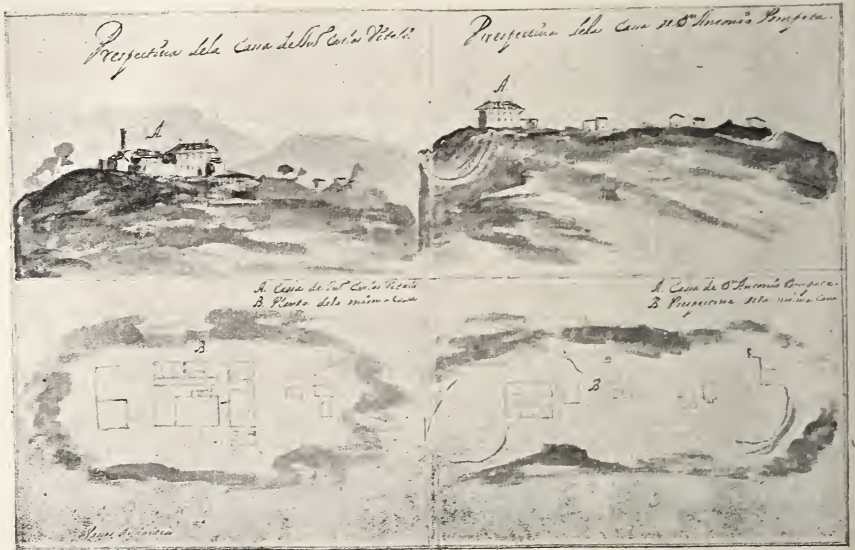 Prespectiva dela Casa de Sul Carlos Vitelá
Prespectiva dela Casa de Dn Antonio Pompeta.
A.
A.
A. Casa de Sul Carlos Vitelá
B. Planta dela misma Casa
A. Casa de Dn Antonio Pompeta.
B. Prespectiva dela misma Casa
B.
B